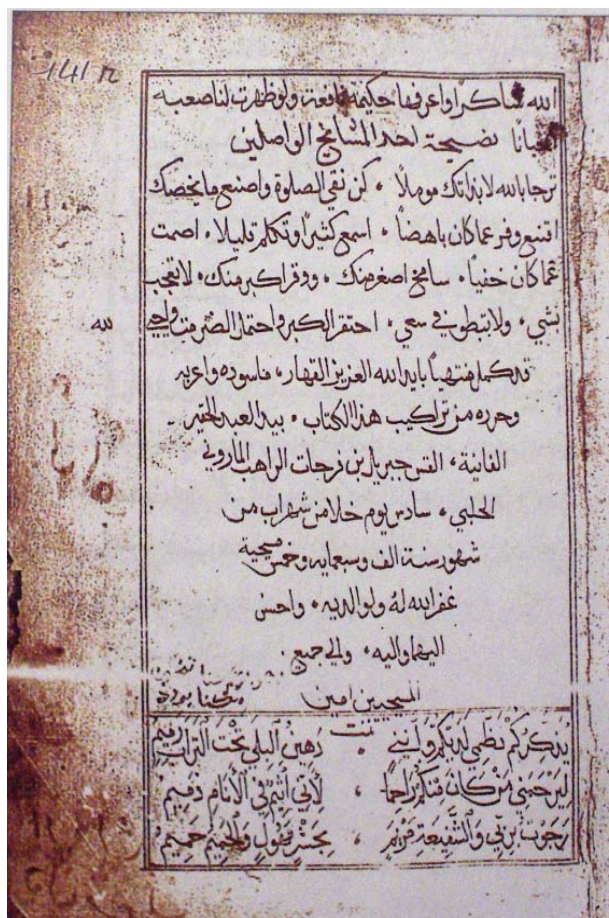 141 r
الله شاكرا واعرفها حكيمة نافعة ولو ظهرت لنا صعبه
احيانا نصيحة احد المشايخ الواصلين
ترجا بالله لا بذاتك مومولاً ، كن نقي الصلوة واصنع ما يخصك
اقتنع وفر عما كان باهضاً ، اسمع كثيراً وتكلم قليلا ، اصمت
عما كان خفياً ، سامح اصغر منك ، ووقر اكبر منك ، لا تعجب
بشي ، ولا تبطو في سعي ، احتقر الكبر واحتمل
لله
قد كمل منتهياً بايد الله العزيز القهار ، ما سوده واعربه
وحرره من تراكيب هذا الكتاب ، بيد العبد
الفانية ، القس جبريل بن فرحات الراهب الماروني
الحلبي ، سادس يوم خلا من شهر اب من
شهور سنة الف وسبعمايه وخمس مسيحية
غفر الله له ولوالديه ، واحسن
اليهما واليه ، والى جميع
المسيحيين امين
تمت
يذكركم نظمي لديكم وانني رهين البلى تحت التراب رميم
ليرحمني من كان منكم راحما ، لاني اثيم في الانام ذميم
رجوت بربي والشفيعة مريم ، بحشر والجحيم حميم